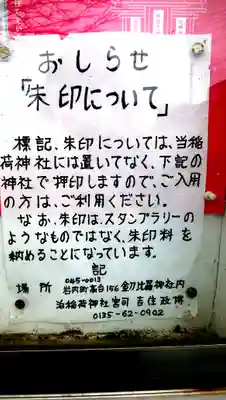 おしらせ
「朱印について」
標記、朱印については、当稲
荷神社には置いてなく、下記の
神社で押印しますので、ご入用
の方は、ご利用ください。
なお、朱印は、スタンプラリーの
ようなものではなく、朱印料を
納めることになっています。
記
045-0013
場所 岩内町高台156 金刀比羅神社内
泊稲荷神社宮司 吉住政悦
0135-62-0902